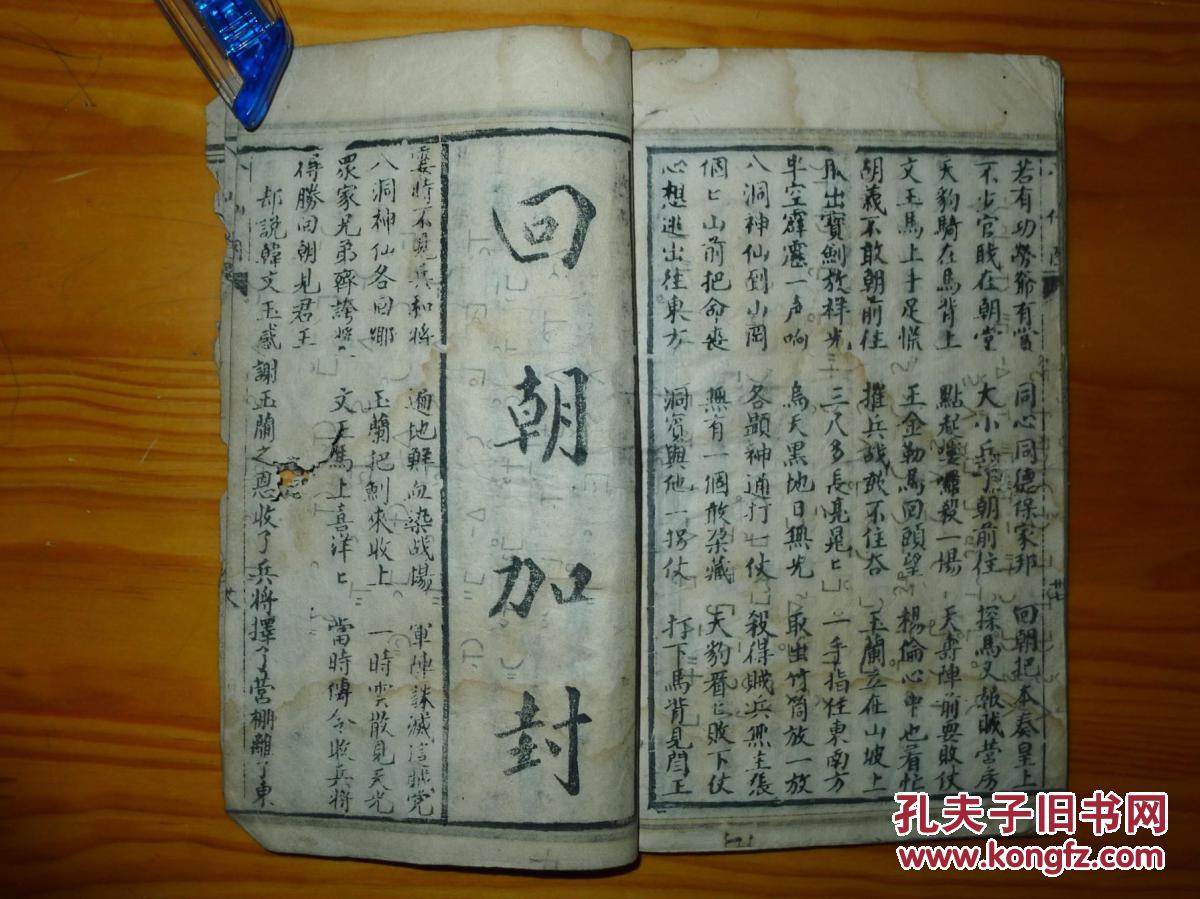 若有功勞爺有賞 同心同德保家邦 回朝把本奏皇上
不少官賎在朝堂 大小兵丁朝前往 探馬又報賊营房
天豹騎在馬背上 點起嘍囉殺一場 天壽陣前要敗仗
文玉馬上手足慌 王金勒馬回頭望 楊倫心中也着忙
胡義不敢朝前往 摧兵战鼓不住夯 玉蘭立在山坡上
抓出寶劍放祥光 三尺多長亮晃匕 一手指往東南方
半空霹靂一声响 烏天黑地日無光 取出竹筒放一放
八洞神仙到山岡 各顯神通打七仗 殺得賊兵無主張
個匕山前把命丧 無有一個敢梁藏 天豹看匕敗下仗
心想逃出往東方 洞賓與他一拐仗 打下馬背見閆王
回朝加封
霎時不見兵和將 遍地鮮血染战場 軍陣誅滅
八洞神仙各回鄉 玉蘭把劍來收上 一時雲散見天光
眾家兄弟齊誇獎 文玉馬上喜洋匕 當時傳令收兵將
得勝回朝見君王
却說韓文玉感謝玉蘭之恩收了兵將擇了营棚離了東
孔夫子旧书网
www.kongfz.com